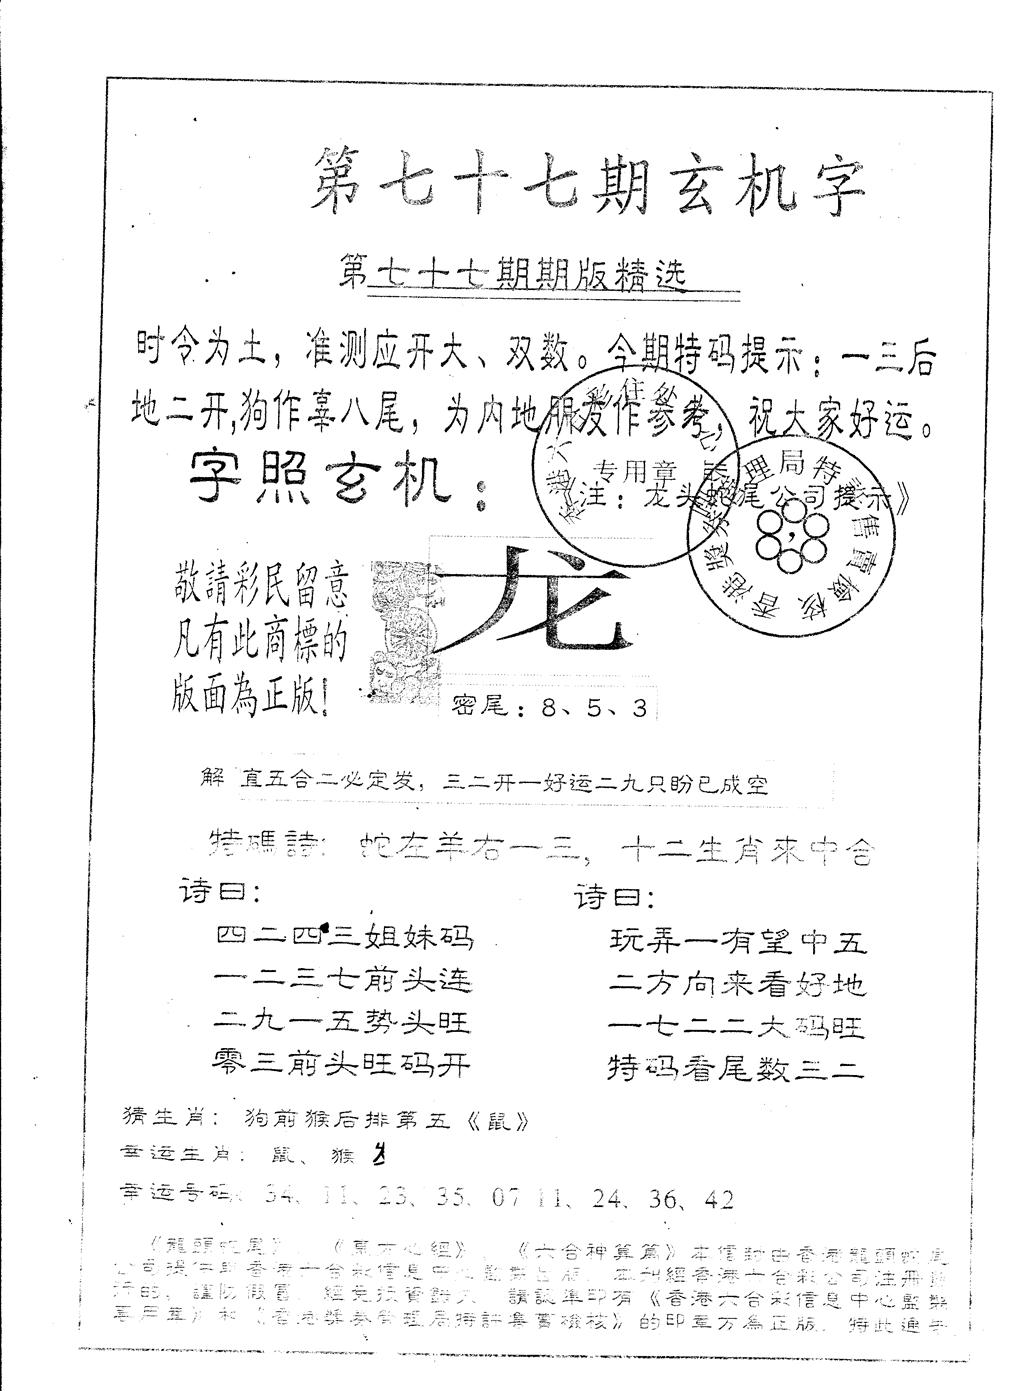 第七十七期玄机字
第七十七期期版精选
时令为土，准测应开大、双数。今期特码提示：一三后
地二开,狗作辜八尾，为内地朋发作参考，祝大家好运。
字照玄机：
专用章
注：龙头蛇尾公司提示》
香港獎券管理局特許售賣檢核
敬請彩民留意
凡有此商標的
版面為正版！
龙
密尾：8、5、3
解 直五合二必定发，三二开一好运二九只盼已成空
特碼詩：蛇左羊右一三，十二生肖來中合
诗曰：
四二四三姐妹码
一二三七前头连
二九一五势头旺
零三前头旺码开
诗曰：
玩弄一有望中五
二方向来看好地
一七二二大码旺
特码看尾数三二
猜生肖：狗前猴后排第五《鼠》
幸运生肖：鼠、猴
幸运号码：34、11、23、35、07 11、24、36、42
《龍頭蛇尾》、《六合神算篇》本信封由香港龍頭蛇尾
公司提供即香港六合彩信息中心監製出版，本刊經香港六合彩公司注冊
行的，謹防假冒，請認準印有《香港六合彩信息中心監製
專用章》和《香港獎券管理局特許售賣檢核》的印章方為正版，特此通告